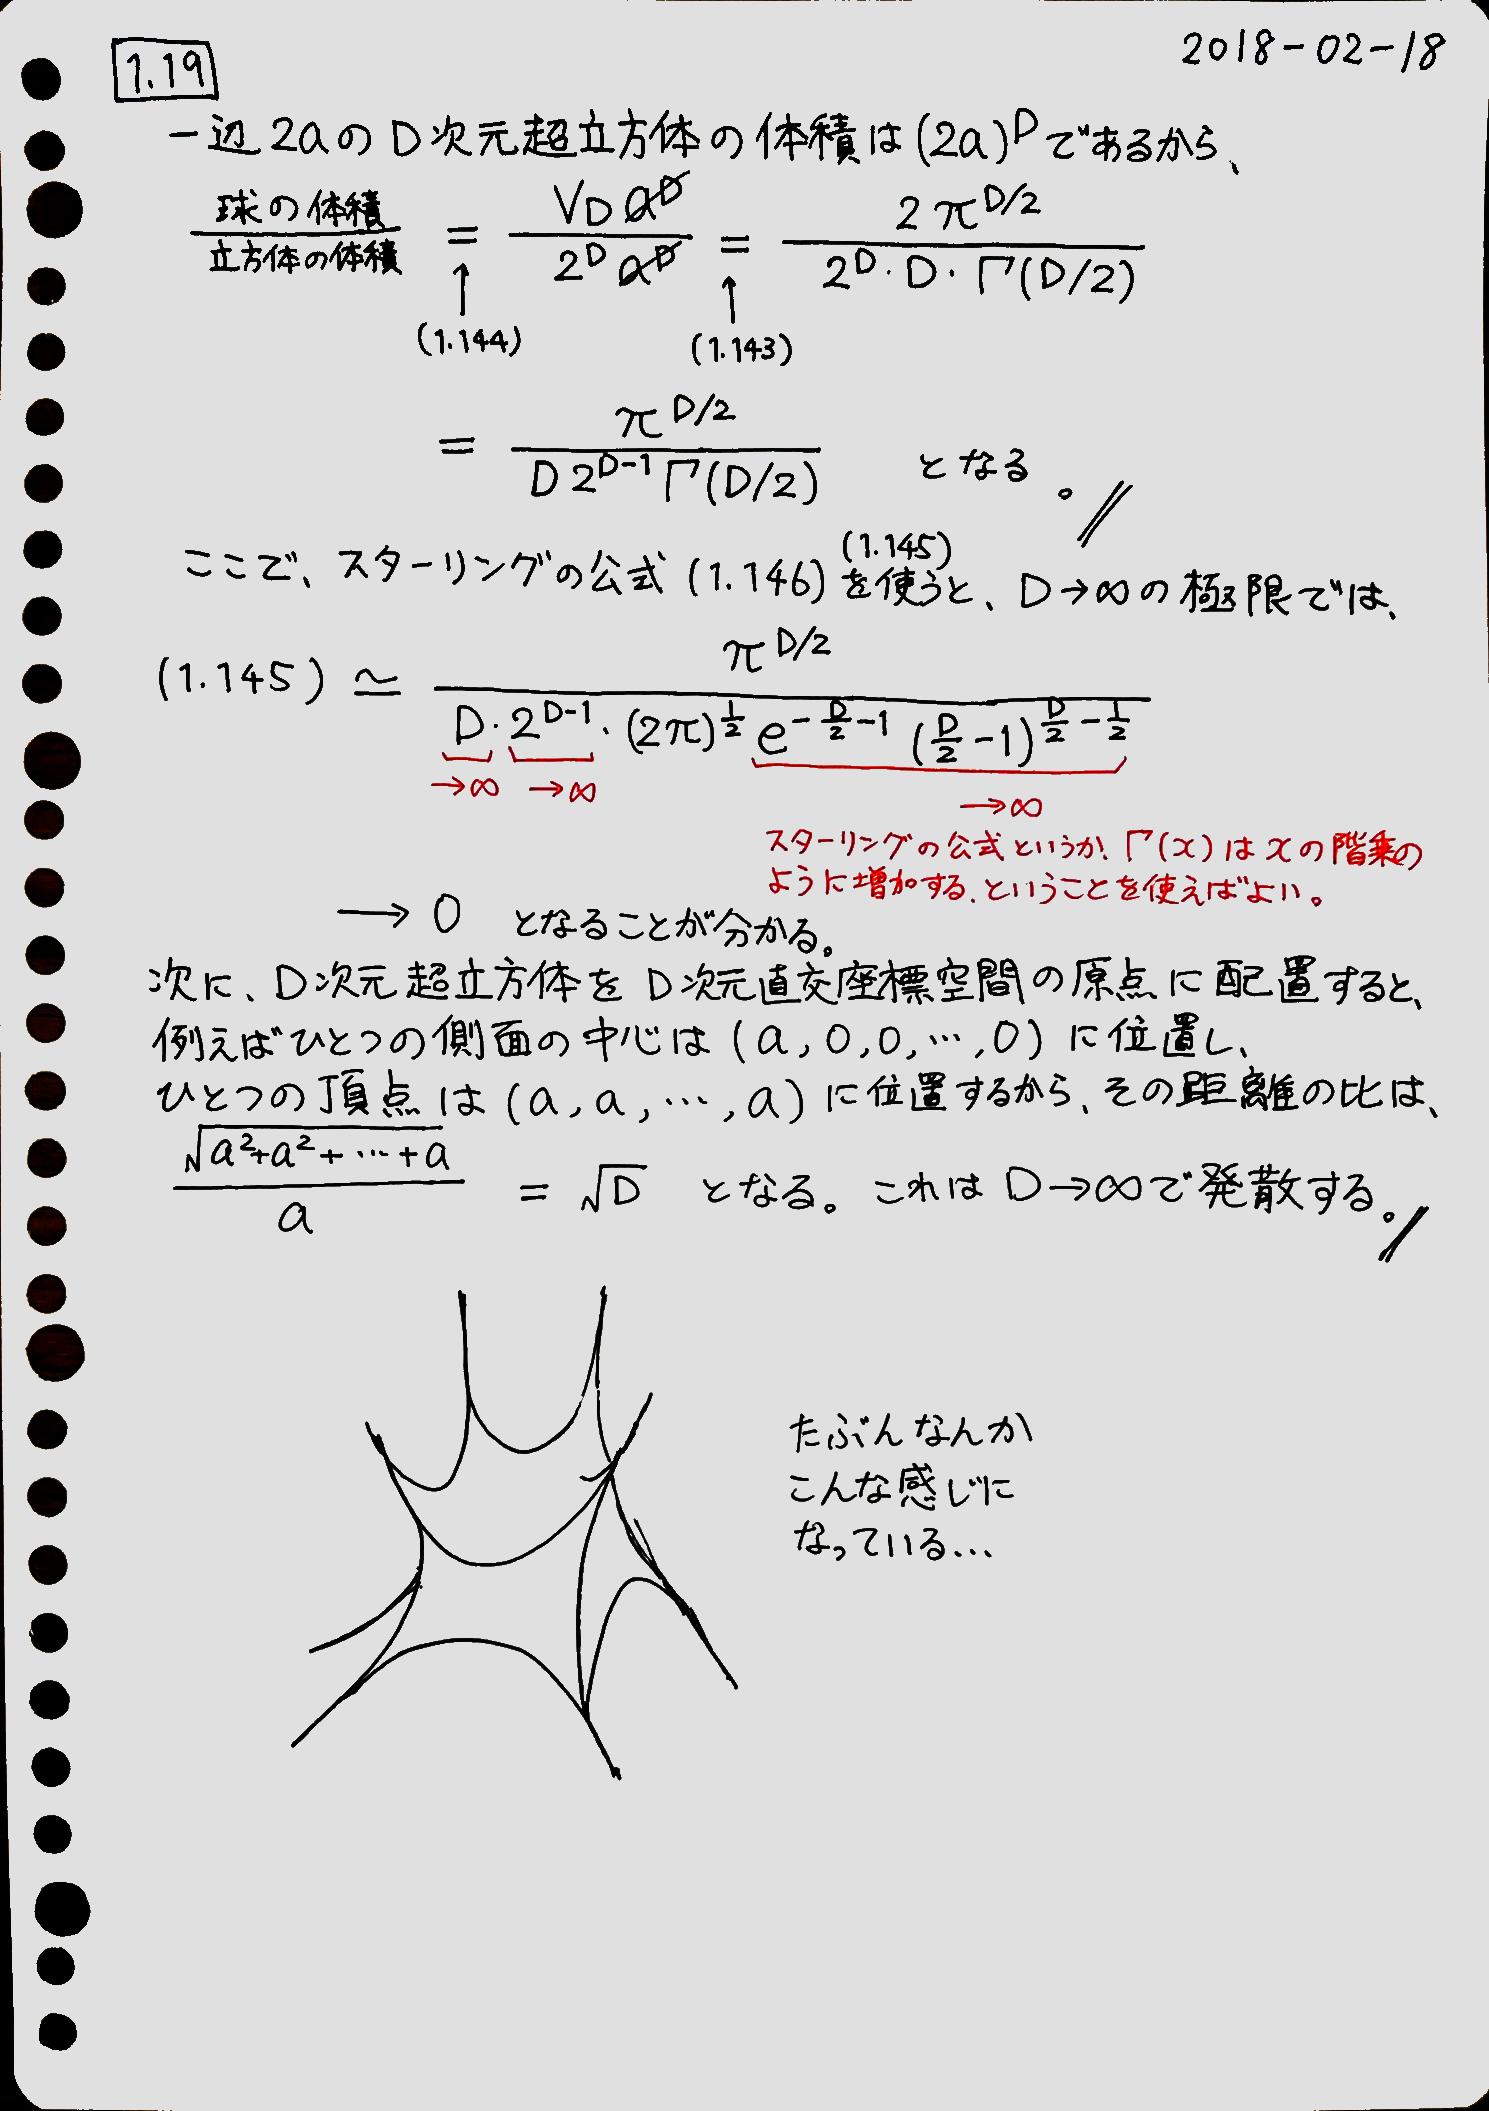 1.19
2018-02-18
一辺2aのD次元超立方体の体積は(2a)^Dであるから、
球の体積/立方体の体積 = V_D a^D / 2^D a^D = 2π^{D/2} / 2^D・D・Γ(D/2)
↑ ↑
(1.144) (1.143)
= π^{D/2} / D 2^{D-1} Γ(D/2) となる。//
(1.145)
ここで、スターリングの公式(1.146)を使うと、D→∞の極限では、
(1.145) ≃ π^{D/2} / D・2^{D-1}・(2π)^{1/2} e^{-D/2-1} (D/2-1)^{D/2-1/2}
→∞ →∞ →∞
スターリングの公式というか、Γ(x)はxの階乗の
ように増加する、ということを使えばよい。
→ 0 となることが分かる。
次に、D次元超立方体をD次元直交座標空間の原点に配置すると、
例えばひとつの側面の中心は(a,0,0,…,0)に位置し、
ひとつの頂点は(a,a,…,a)に位置するから、その距離の比は、
√(a²+a²+…+a) / a = √D となる。これはD→∞で発散する。//
たぶんなんか
こんな感じに
なっている…